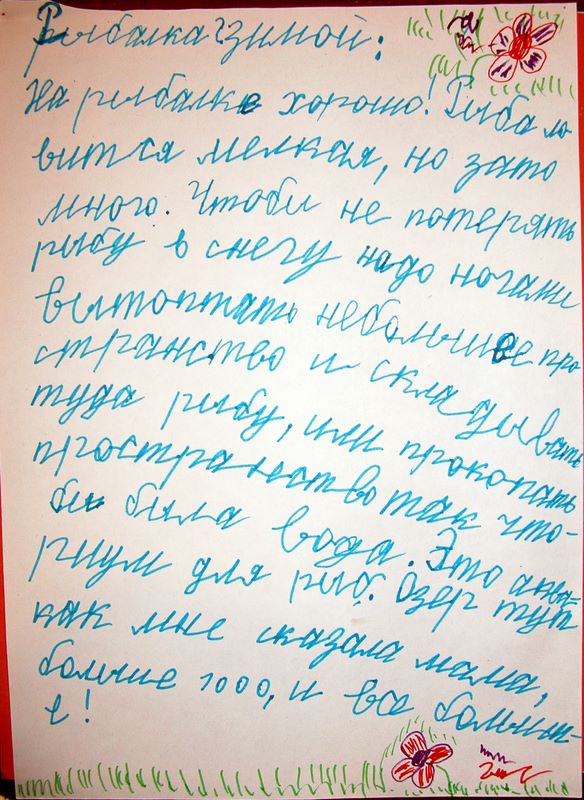 Рыбалка зимой:
На рыбалке хорошо! Рыба ло
вится мелкая, но зато
много. Чтобы не потерять
рыбу в снегу надо ногами
вытоптать небольшое про
странство и складывать
туда рыбу, или прокопать
пространство так что-
бы была вода. Это аква-
риум для рыб. Озер тут
как мне сказала мама,
больше 1000, и все больши-
е!